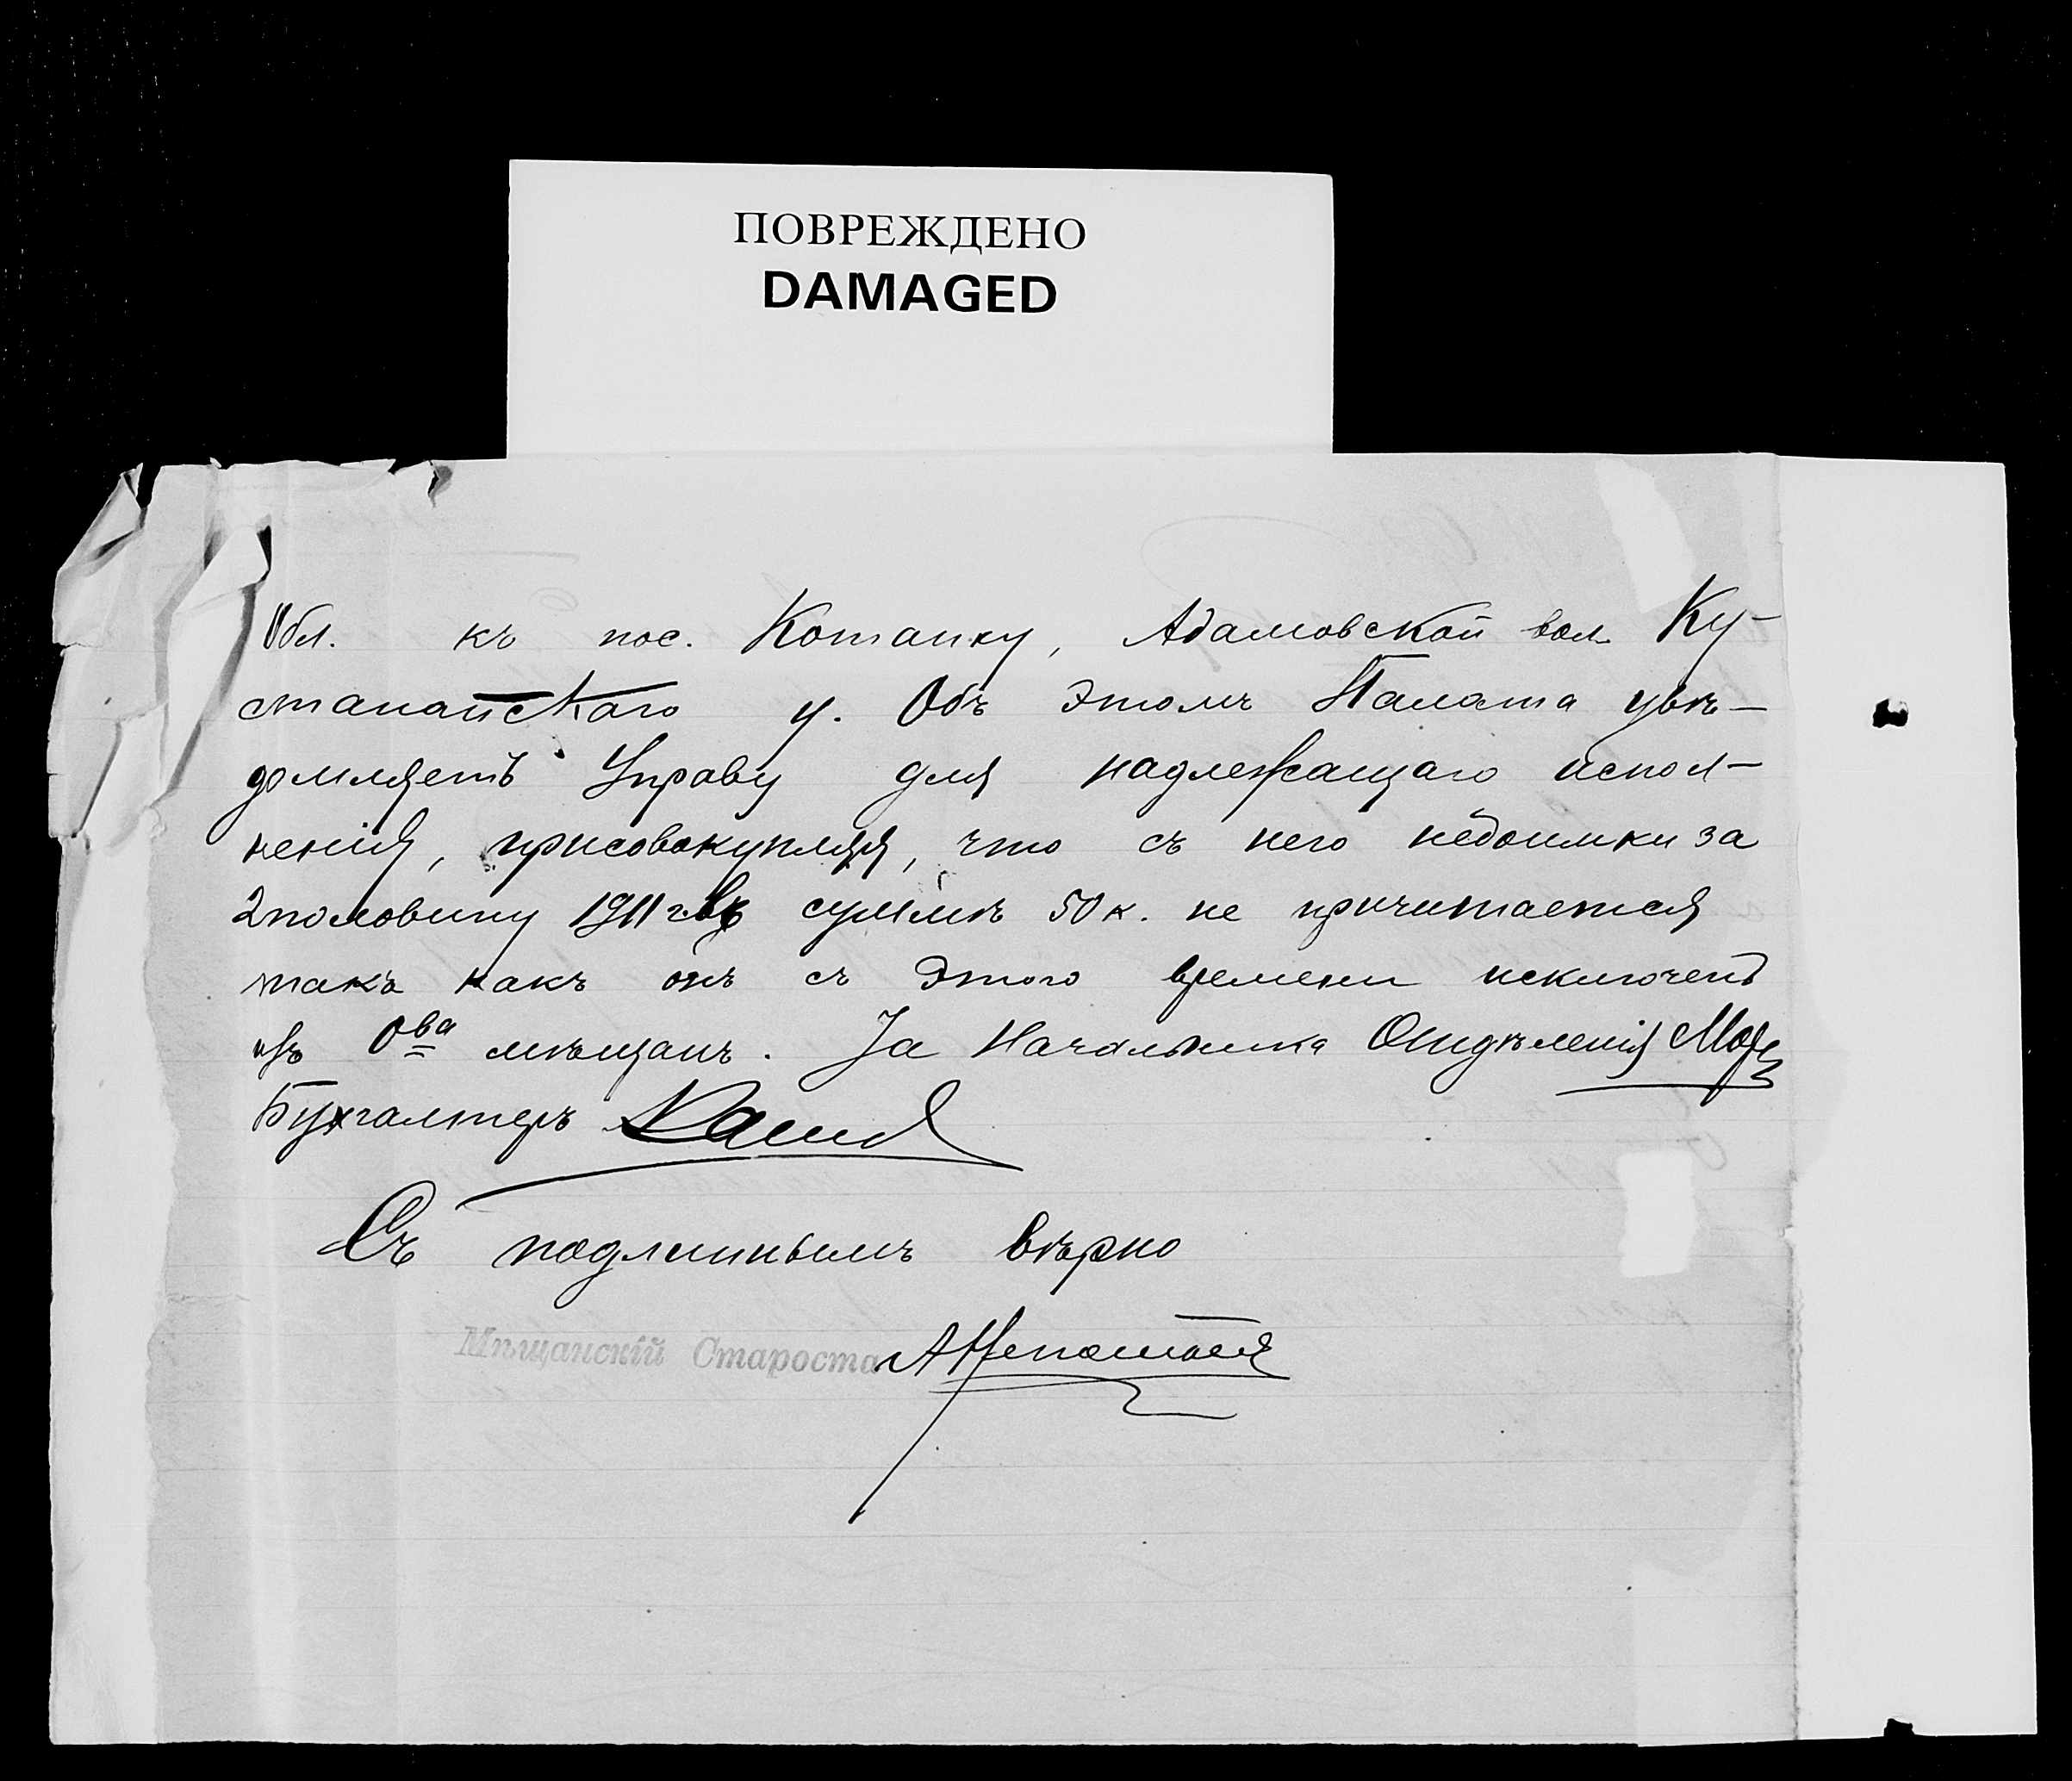 ПОВРЕЖДЕНО
DAMAGED
Обл. къ пос. Котанку, Адамовской вол. Ку-
станайскаго у. Объ этомъ Палата увѣ-
домляетъ Управу для надлежащаго испол-
ненія, присовокупляя, что съ него недоимки за
2 половину 1911 г. въ суммѣ 50 к. не причитается
такъ какъ онъ съ этого времени исключенъ
изъ О-ва мѣщанъ. За Начальника Отдѣленія
Бухгалтеръ
Съ подлиннымъ вѣрно
Мѣщанскій Староста